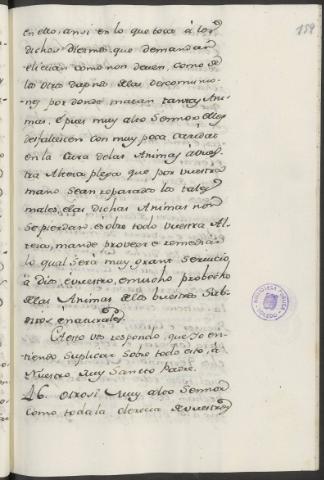 159
en ello, ansi en lo que toca á los
dichos diezmos que demandan
elicitan como non deven, como de
las otras dapnos de las descomunio-
nes por donde matan tantas Ani-
mas. E pues muy alto Señor ellos
desfallecen con muy poca caridat
en la Cura de las Animas á vues-
tra Alteza plega que por vuestra
mano sean reparados los tales
males, e las dichas Animas non
se pierdan, é sobre todo vuestra Al-
teza, mande proveer e remediar
lo qual será muy grant servicio
á Dios, e vuestro, e mucho probecho
de las Animas de los vuestros Sub-
ditos é naturales.
á Esto vos respondo, que Yo en-
tiendo Suplicar sobre todo esto, á
Nuestro muy Sancto Padre.
46. Otrosi Muy alto Señor
Como toda la clerecia de vuestros
BIBLIOTECA PUBLICA
TOLEDO